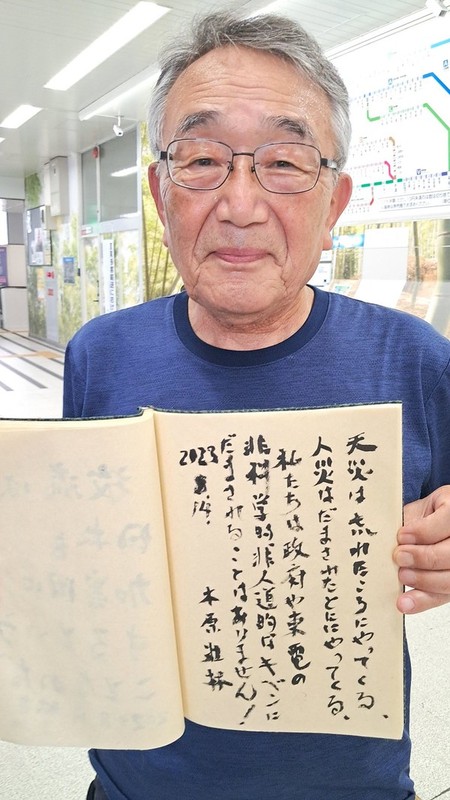 天災は忘れたころにやってくる、
人災はだまされたとにやってくる、
私たちは政府や東電の
非科学的、非人道的なキベンに
だまされることはありません!
2023
木原壯林